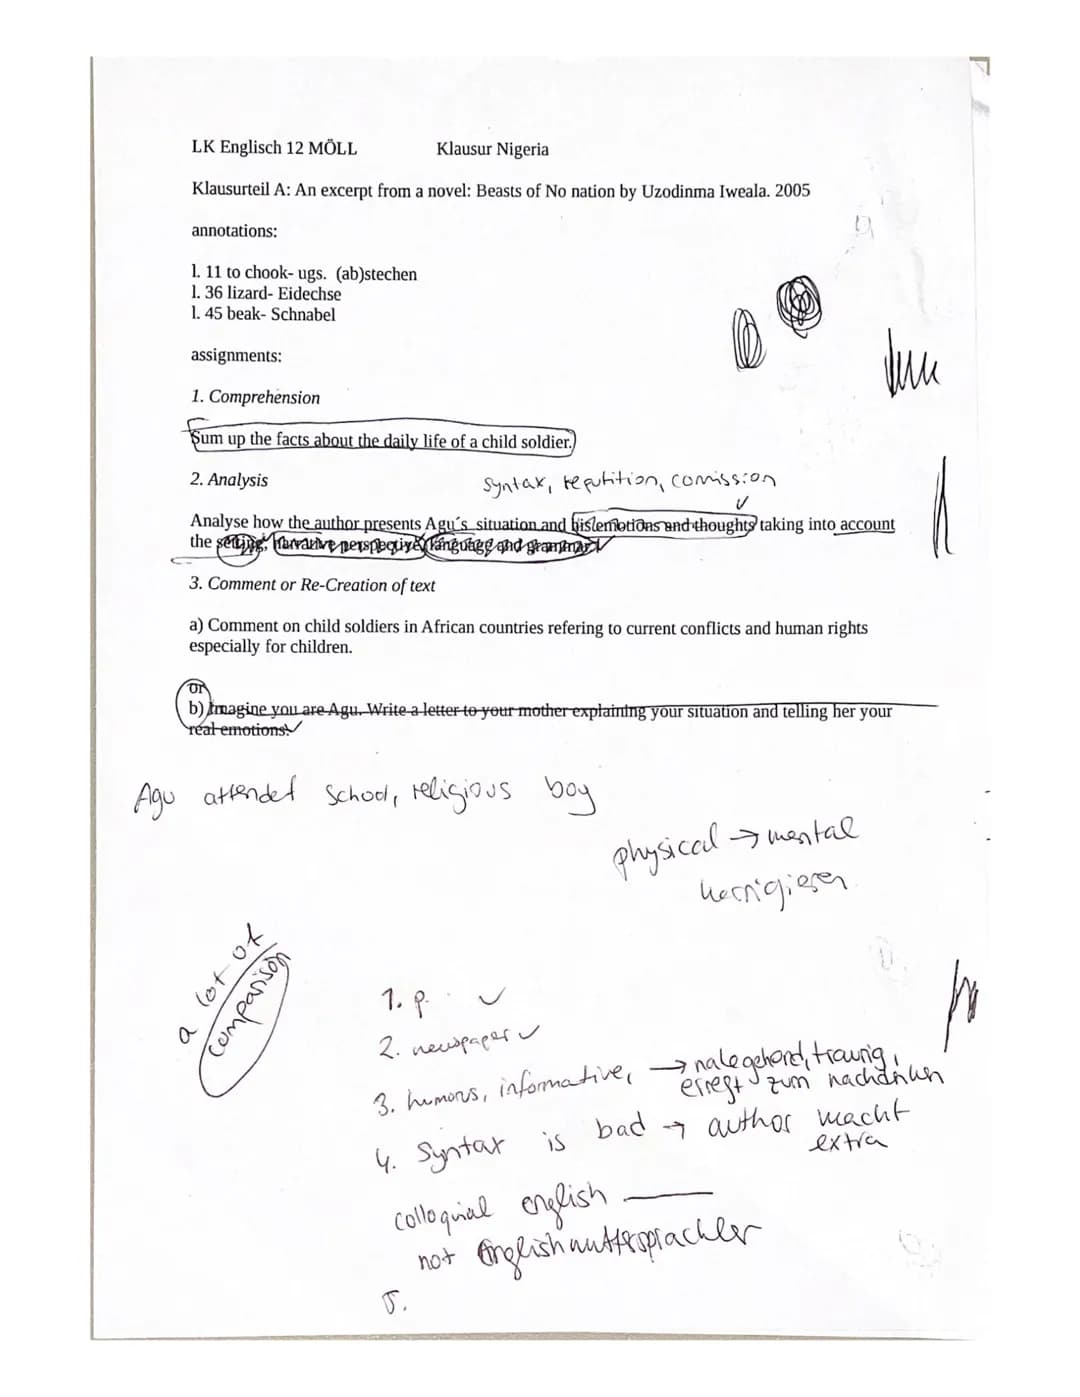 LK Englisch 12 MÖLL Klausur Nigeria
Klausurteil A: An excerpt from a novel: Beasts of No nation by Uzodinma Iweala. 2005
annotations:
l. 11 to chook- ugs. (ab)stechen
l. 36 lizard- Eidechse
l. 45 beak- Schnabel
assignments:
1. Comprehension
Sum up the facts about the daily life of a child soldier.
2. Analysis
syntax, reputition, comission
Analyse how the author presents Agu´s situation and his emotions and thoughts taking into account
the setting, narrative perspective, language and grammar.
3. Comment or Re-Creation of text
a) Comment on child soldiers in African countries refering to current conflicts and human rights
especially for children.
or
b) Imagine you are Agu. Write a letter to your mother explaining your situation and telling her your
real emotions.
Agu attendet school, religious boy
physical → mental
a lot of
comparison
1. p.
2. newspaper
3. humorus, informative, → nahegehend, traurig,
erregt zum nachdenken
4. Syntax is bad → author macht
extra
colloquial english
not Englishmuttersprachler
5.